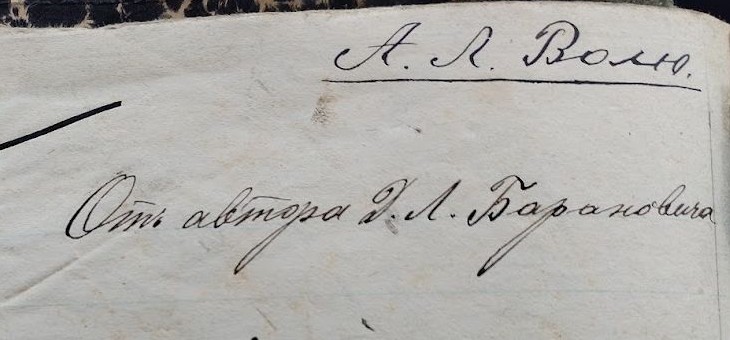 А. Л. Волю.
Отъ автора Д. Л. Барановича